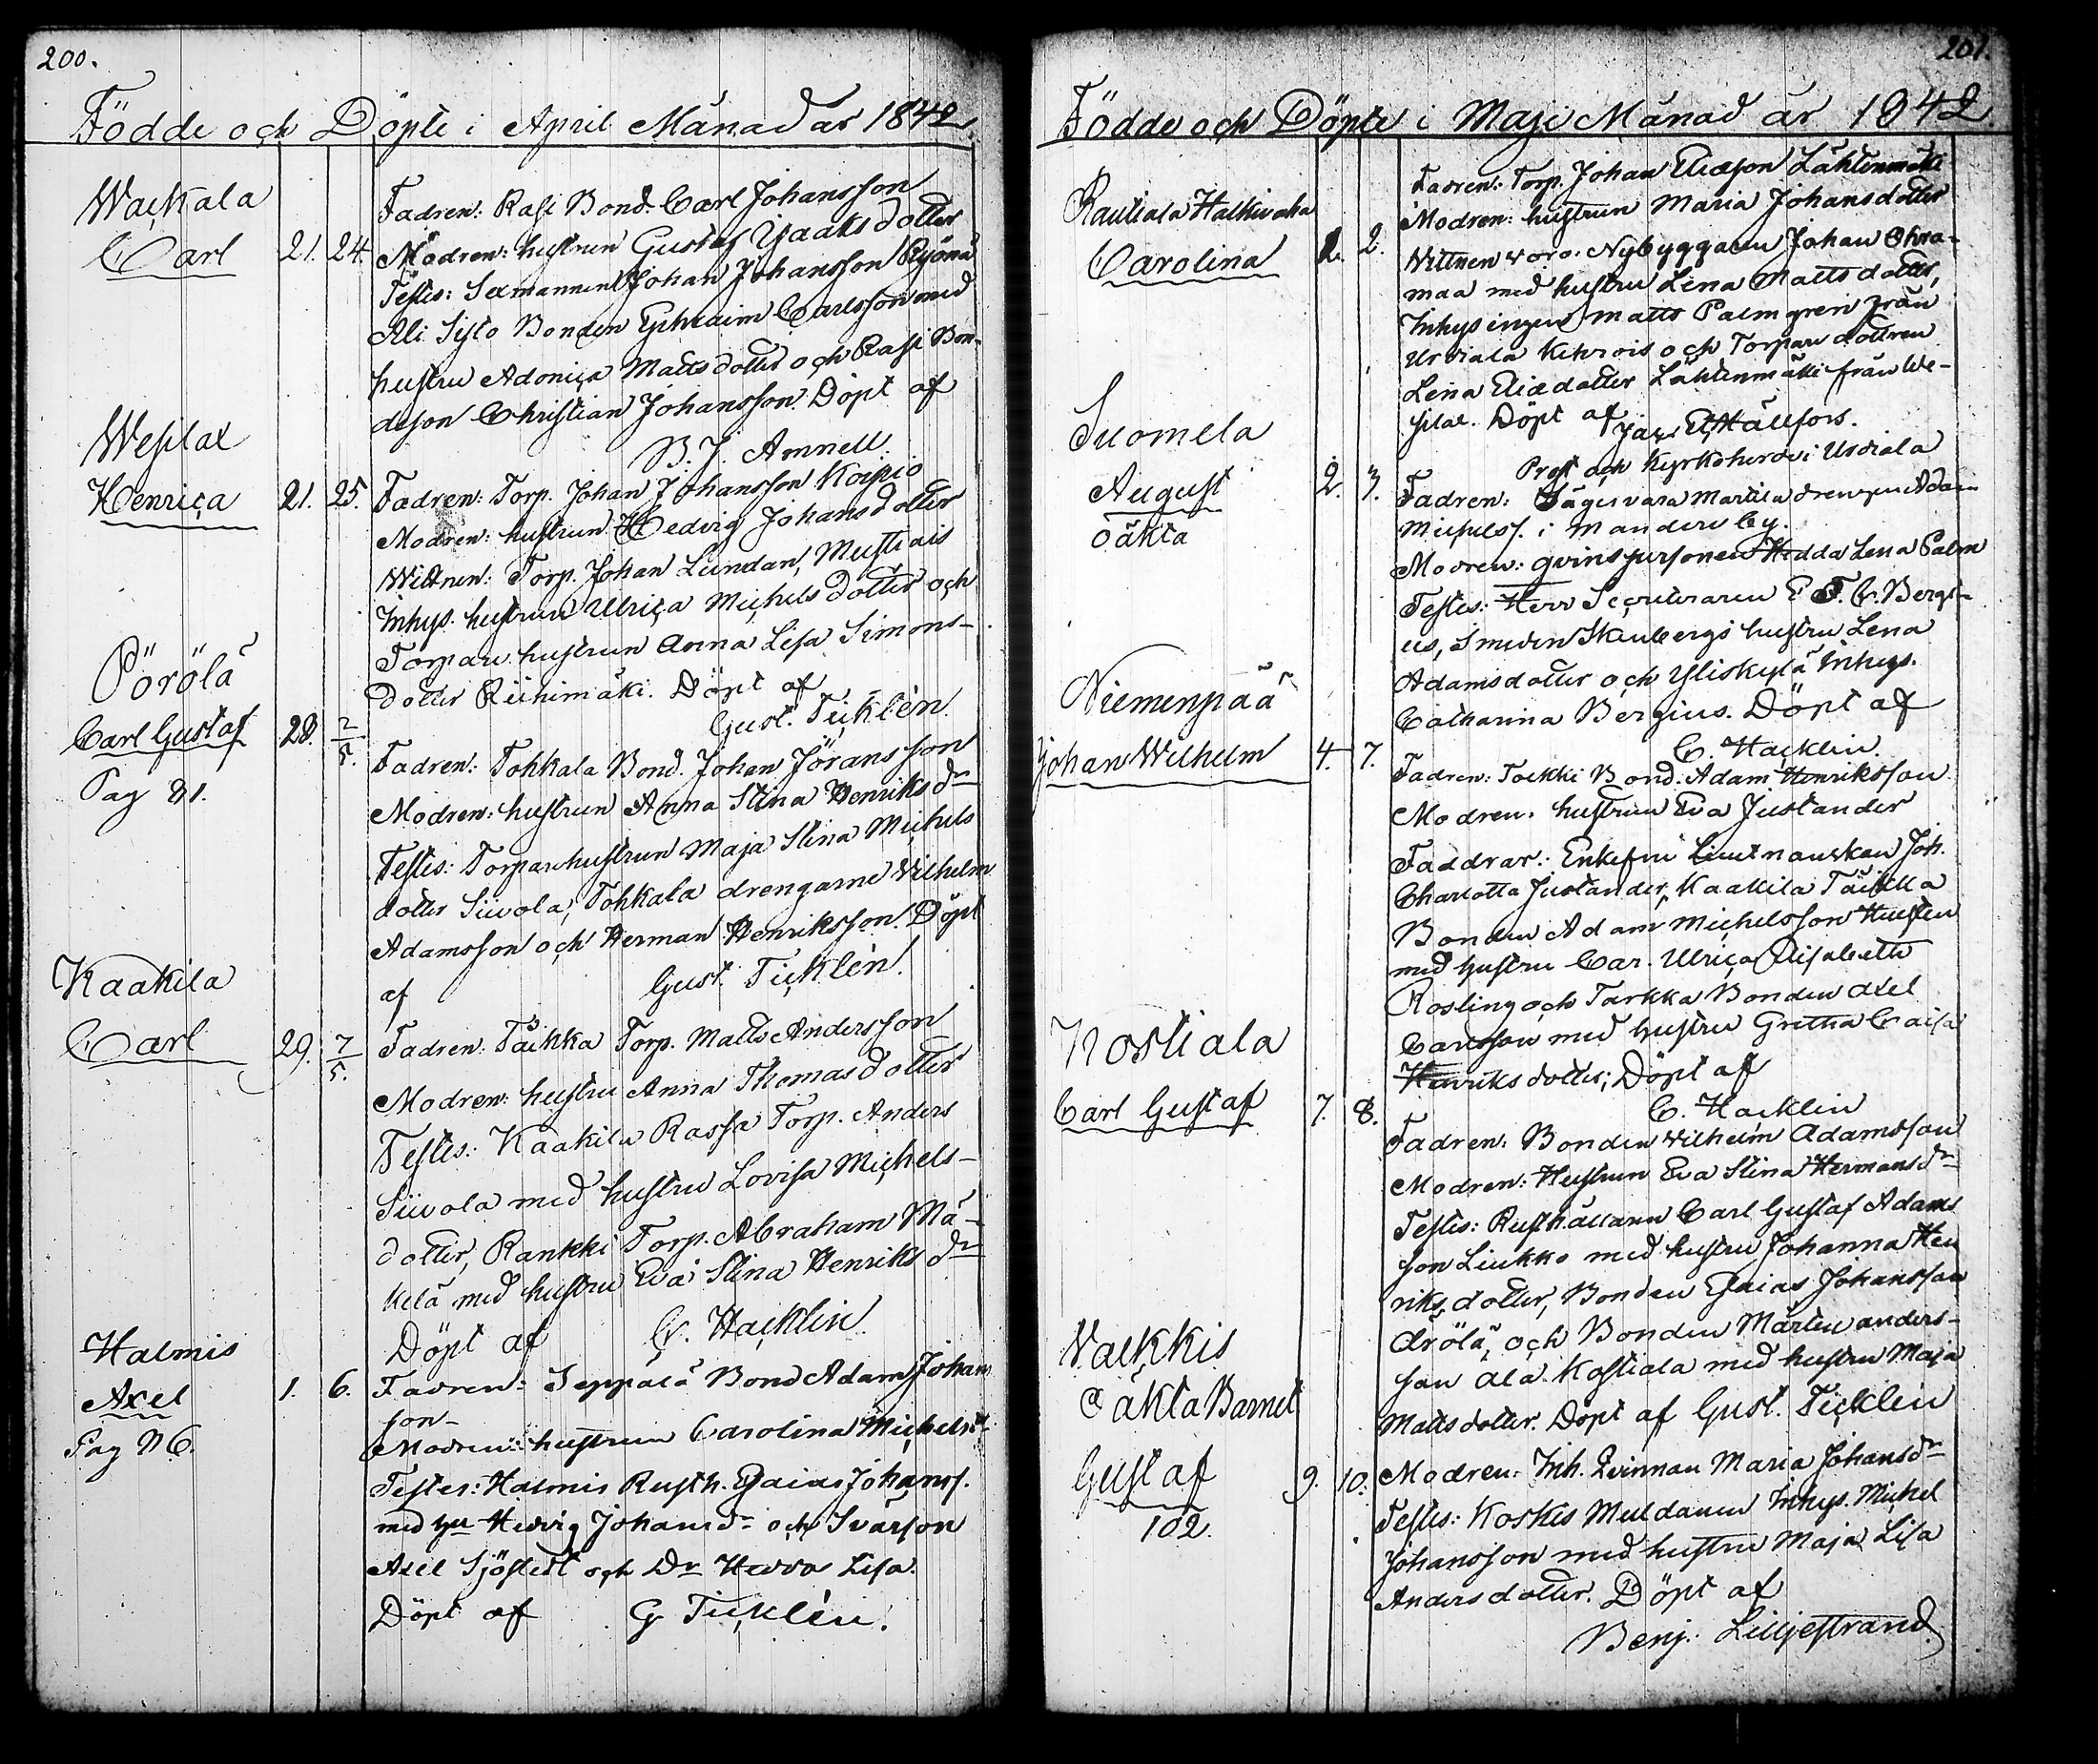 200.
Födde och Döpte i April Månad år 1842
Wackala
Carl 21. 24.
Fadren: Rasi Bond. Carl Johansson
Modren: hustrun Gustaf Jaaks dotter
Testis: Sexmannen Johan Johansson
Ali Sisto Bonden Ephraim Carlsson med
hustru Adonica Matts dotter och Rasi Bon-
deson Christian Johansson. Döpt af
B. J. Amnell.
Wesilax
Henrica 21. 25.
Fadren: Torp. Johan Johansson Koipio
Modren: hustrun Hedvig Johans dotter
Wittnen: Torp. Johan Lundan, Mustiais
Inhys. hustrun Ulrica Michels dotter och
Torpare hustrun Anna Lisa Simons-
dotter Riihimäki. Döpt af
Gust. Ticklén.
Pörölä
Carl Gustaf 28. 2/5.
Pag 81.
Fadren: Tohkala Bond. Johan Jöransson
Modren: hustrun Anna Stina Henriks dr
Testis: Torpare hustrun Maja Stina Michels
dotter Siivola, Tohkala drengarne Vilhelm
Adamsson och Herman Henriksson. Döpt
af Gust. Ticklén.
Kaakila
Carl 29. 7/5.
Fadren: Täikka Torp. Matts Andersson
Modren: hustru Anna Thomas dotter
Testis: Kaakila Rassa Torp. Anders
Siivola med hustru Lovisa Michels-
dotter, Rankki Torp. Abraham Mä-
kelä med hustru Eva Stina Henriks dr
Döpt af C. Hacklin
Halmis
Axel 1. 6.
Pag 86.
Fadren: Seppälä Bond Adam Johans
son-
Modren: hustrun Carolina Michels dr
Testes: Halmis Rusth. Esaias Johanss.
med hu Hedvig Johans dr och Svärson
Axel Sjöstedt och Dr Hedda Lisa.
Döpt af G Ticklén.
201.
Födde och Döpte i Maji Månad år 1842.
Rautiala Halkivaha
Carolina 1. 2.
Fadren: Torp. Johan Eliæson Lähtenmäki
Modren: hustrun Maria Johansdotter
Wittnen voro: Nybyggaren Johan Ohra-
maa med hustru Lena Matts dotter,
Inhysingen Matts Palmgren från
Urdiala Kehrois och Torpare dottren
Lena Eliædotter Lähtenmäki från We-
silax. Döpt af Jac. Ed. Hällfors.
Prost och Kyrkoherde i Urdiala
Suomela
August 2. 3.
oäkta
Fadren: Säges vara Martila drengen Adam
Michelss. i by.
Modren: qvinspersonen Hedda Lena Palm
Testis: Herr Secreteraren E. F. G. Bergi-
us, Smeden Stenbergs hustru Lena
Adamsdotter och Yliskylä Inhys.
Catharina Bergius. Döpt af
C. Hacklin.
Niemenpää
Johan Wilhelm 4. 7.
Fadren: Tockki Bond. Adam Henriksson
Modren. hustrun Eva Justander
Faddrar: Enkefru Lieutnanskan Joh.
Charlotta Justander, Kaakila Täikka
Bonden Adam Michelsson Husten
med hustru Car. Ulrica Elisabeth
Rosling och Tarkka Bonden Axel
Carlsson med hustru Gretha Caisa
Henriks dotter; Döpt af
C. Hacklin
Kostiala
Carl Gustaf 7. 8.
Fadren: Bonden Wilhelm Adamsson
Modren: Hustrun Eva Stina Hermans dr
Testis: Rusthållaren Carl Gustaf Adams
son Liukko med hustru Johanna Hen
riks dotter, Bonden Esaias Johansson
Arölä, och Bonden Mårten Anders-
son Ala Kostiala med hustru Maja
Matts dotter. Döpt af Gust. Ticklén
Valkkis
OäktaBarnet
Gustaf 9. 10.
102.
Modren: Inh. Qvinnan Maria Johans dr
Testis: Koskis Muldanen Inhys. Michel
Johansson med hustru Maja Lisa
Anders dotter. Döpt af
Benj: Liljestrand